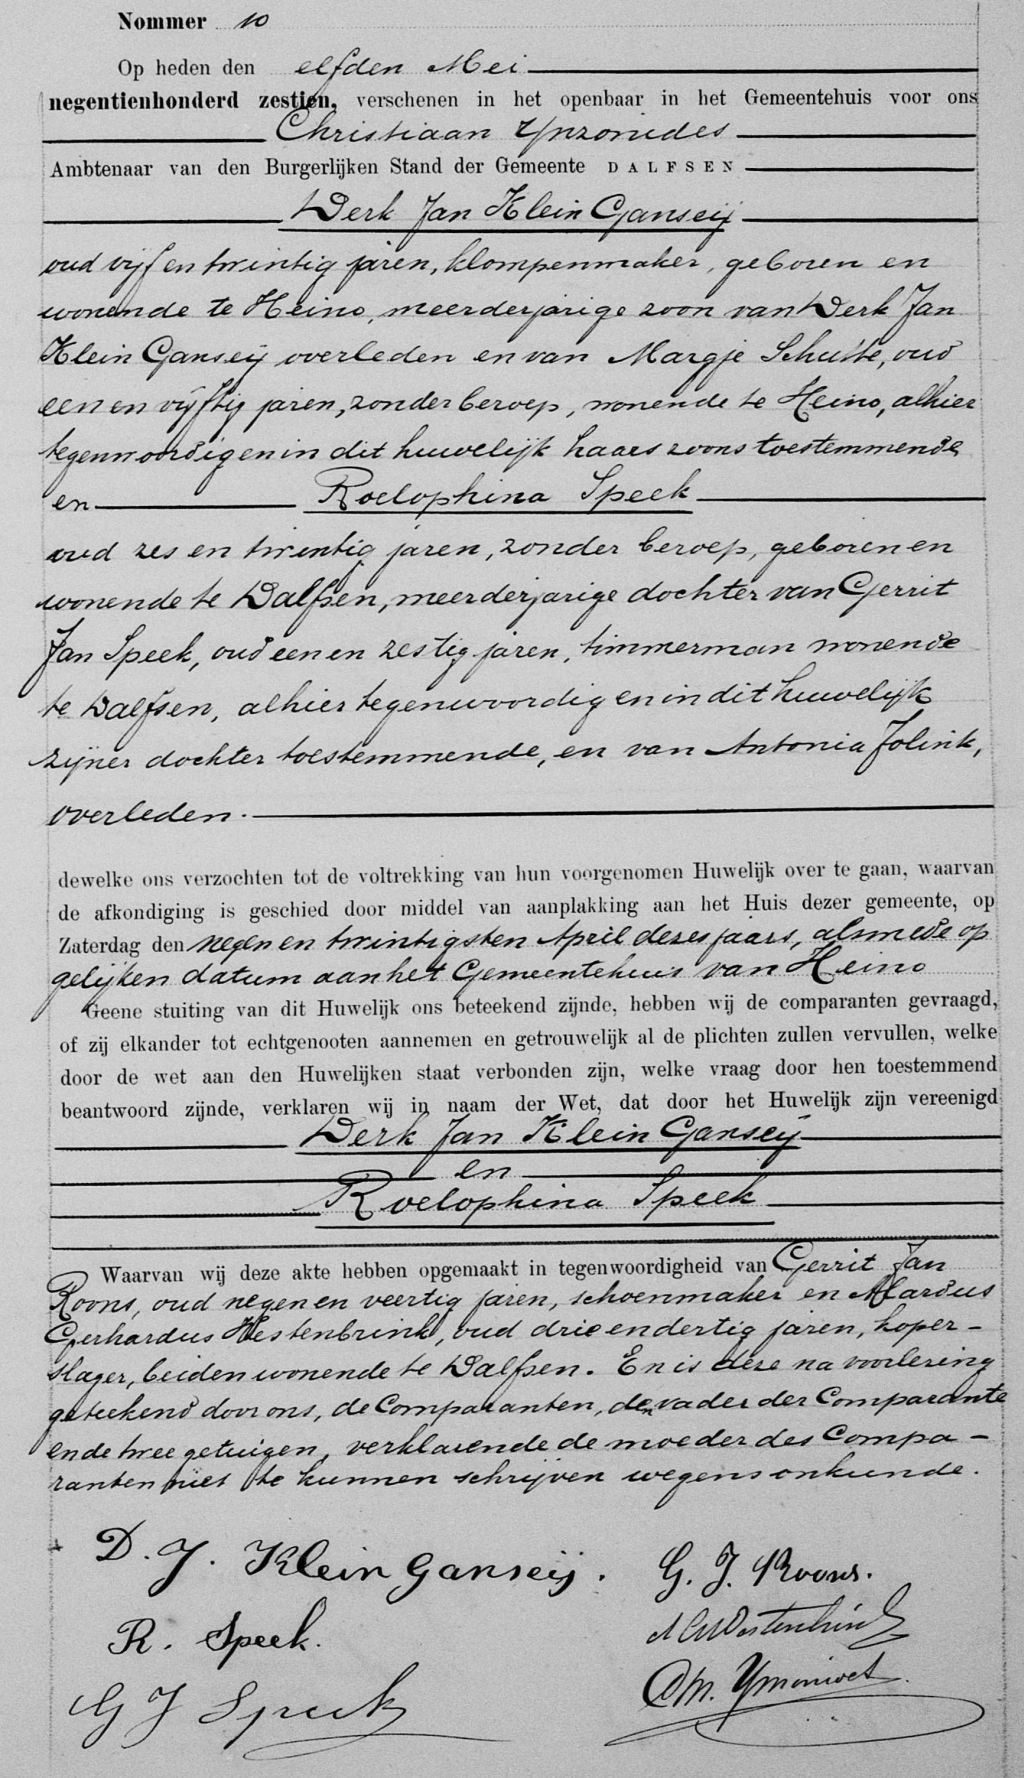 Nommer 10
Op heden den elfden Mei
negentienhonderd zestien, verschenen in het openbaar in het Gemeentehuis voor ons
Christiaan Ynzonides
Ambtenaar van den Burgerlijken Stand der Gemeente DALFSEN
Derk Jan Klein Ganseij
oud vijf en twintig jaren, klompenmaker, geboren en
wonende te Heino, meerderjarige zoon van Derk Jan
Klein Ganseij overleden en van Margje Schutte, oud
een en vijftig jaren, zonder beroep, wonende te Heino, alhier
tegenwoordig en in dit huwelijk haars zoons toestemmende
en Roelophina Speek
oud zes en twintig jaren, zonder beroep, geboren en
wonende te Dalfsen, meerderjarige dochter van Gerrit
Jan Speek, oud een en zestig jaren, timmerman wonende
te Dalfsen, alhier tegenwoordig en in dit huwelijk
zijner dochter toestemmende, en van Antonia Jolink,
overleden.
dewelke ons verzochten tot de voltrekking van hun voorgenomen Huwelijk over te gaan, waarvan
de afkondiging is geschied door middel van aanplakking aan het Huis dezer gemeente, op
Zaterdag den negen en twintigsten April dezes jaars, alsmede op
gelijken datum aan het Gemeentehuis van Heino
Geene stuiting van dit Huwelijk ons beteekend zijnde, hebben wij de comparanten gevraagd,
of zij elkander tot echtgenooten aannemen en getrouwelijk al de plichten zullen vervullen, welke
door de wet aan den Huwelijken staat verbonden zijn, welke vraag door hen toestemmend
beantwoord zijnde, verklaren wij in naam der Wet, dat door het Huwelijk zijn vereenigd
Derk Jan Klein Ganseij
en
Roelophina Speek
Waarvan wij deze akte hebben opgemaakt in tegenwoordigheid van Gerrit Jan
Roons, oud negen en veertig jaren, schoenmaker en Alardus
Gerhardus Westenbrink, oud drie en dertig jaren, koper-
slager, beiden wonende te Dalfsen. En is deze na voorlezing
geteekend door ons, de Comparanten, den vader der Comparante
en de twee getuigen, verklarende de moeder des Compa-
ranten niet te kunnen schrijven wegens onkunde.
D. J. Klein Ganseij. G. J. Roons.
R. Speek. AGWestenbrink
G J Speek